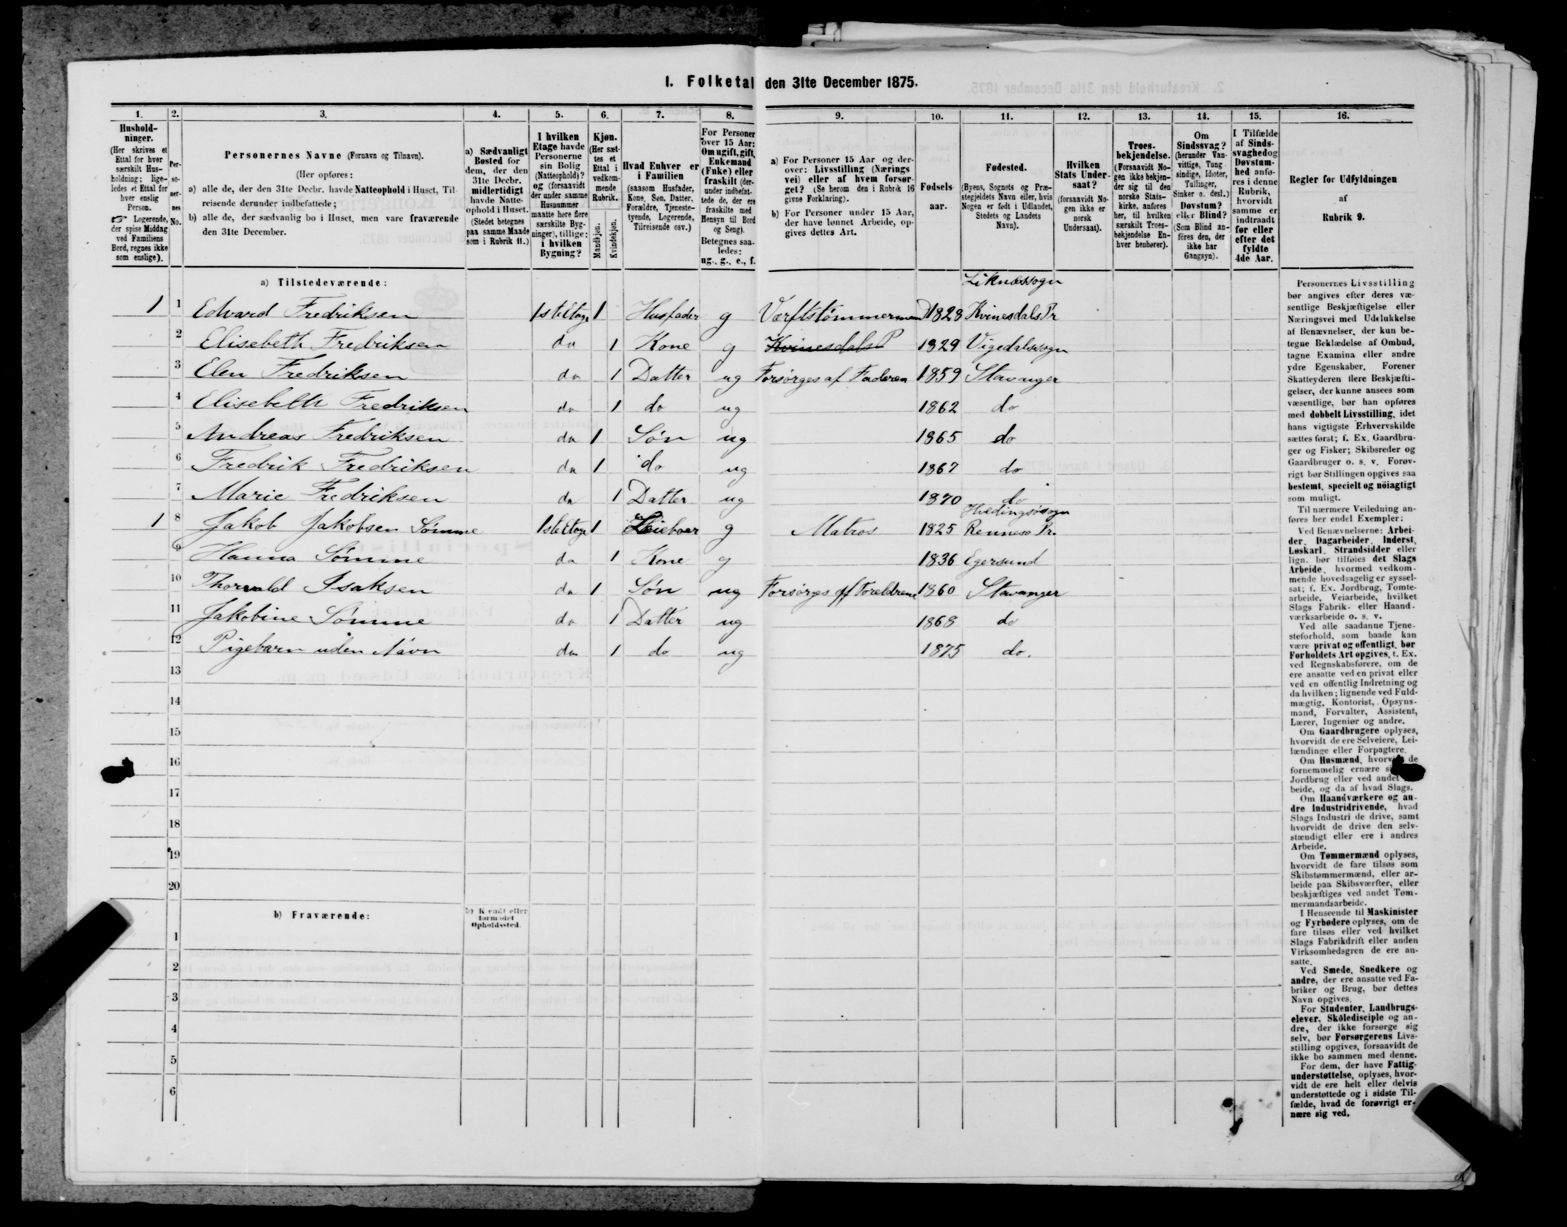 I. Folketal den 31te December 1875.
1. 2. 3. 4. 5. 6. 7. 8. 9. 10. 11. 12. 13. 14. 15. 16.
Hushold-
ninger.
(Her skrives et
Ettal for hver
særskilt Hus-
holdning; lige-
ledes et Ettal for
hver enslig
Person.
☞ Logerende,
der spise Middag
ved Familiens
Bord, regnes ikke
som enslige).
Per-
so-
ner-
nes
No.
Personernes Navne (Fornavn og Tilnavn).
(Her opføres:
a) alle de, der den 31te Decbr. havde Natteophold i Huset, Til-
reisende derunder indbefattede;
b) alle de, der sædvanlig bo i Huset, men vare fraværende
den 31te December.
a) Sædvanligt
Bosted for
dem, der den
31te Decbr.
midlertidigt
havde Natte-
ophold i Huset.
(Stedet betegnes
paa samme Maade
som i Rubrik 11.)
I hvilken
Etage havde
Personerne
sin Bolig
(Natteophold)?
og (forsaavidt
der under samme
Husnummer
maatte høre flere
særskilte Byg-
ninger), tillige:
i hvilken
Bygning?
Kjøn.
(Her sæt-
tes et
Ettal i
vedkom-
mende
Rubrik.
Mandkjøn.
Kvindekjøn.
Hvad Enhver er
i Familien
(saasom Husfader,
Kone, Søn, Datter,
Forældre, Tjeneste-
tyende, Logerende,
Tilreisende osv.)
For Personer
over 15 Aar:
Om ugift, gift,
Enkemand
(Enke) eller
fraskilt (der-
under indbefat-
tede de, der ere
fraskilte med
Hensyn til Bord
og Seng).
Betegnes saa-
ledes:
ug., g., e., f.
a) For Personer 15 Aar og der-
over: Livsstilling (Nærings-
vei) eller af hvem forsør-
get? (Se herom den i Rubrik 16
givne Forklaring).
b) For Personer under 15 Aar,
der have lønnet Arbeide, op-
gives dettes Art.
Fødsels-
aar.
Fødested.
(Byens, Sognets og Præ-
stegjeldets Navn eller, hvis
Nogen er født i Udlandet,
Stedets og Landets
Navn).
Hvilken
Stats Under-
saat?
(forsaavidt No-
gen ikke er
norsk
Undersaat).
Troes-
bekjendelse.
(Forsaavidt No-
gen ikke bekjen-
der sig til den
norske Stats-
kirke, anføres
her, til hvilken
særskilt Troes-
bekjendelse En-
hver henhører).
Om
Sindssvag?
(herunder Van-
vittige, Tung-
sindige, Idioter,
Tullinger,
Sinker o. desl.)
Døvstum?
eller Blind?
(Som Blind an-
føres den, der
ikke har
Gangsyn).
I Tilfælde
af Sinds-
svaghed og
Døvstum-
hed anfø-
res i denne
Rubrik,
hvorvidt
samme er
indtraadt
før eller
efter det
fyldte
4de Aar.
Regler for Udfyldningen
af
Rubrik 9.
a) Tilstedeværende:
Liknæssogn
1 1 Edvard Fredriksen 1ste Etage 1 Husfader g Værftstømmermand 1828 Kvinesdals Pr
2 Elisebeth Fredriksen do 1 Kone g Kvinesdals P 1829 Vigedalssogn
3 Elen Fredriksen do 1 Datter ug Forsørges af Faderen 1859 Stavanger
4 Elisebeth Fredriksen do 1 do ug 1862 do
5 Andreas Fredriksen do 1 Søn ug 1865 do
6 Fredrik Fredriksen do 1 do ug 1867 do
7 Marie Fredriksen do 1 Datter ug 1870 do
Hvidingsøsogn
1 8 Jakob Jakobsen Sømme 1ste Etage 1 Leieboer g Matros 1825 Rennesø Pr.
9 Hanna Sømme do 1 Kone g 1836 Egersund
10 Thorvald Isaksen do 1 Søn ug Forsørges af Foreldrene 1860 Stavanger
11 Jakobine Sømme do 1 Datter ug 1868 do
12 Pigebarn uden Navn do 1 do ug 1875 do.
13
14
15
16
17
18
19
20
b) Fraværende:
b) Kjendt eller
formodet
Opholdssted.
1
2
3
4
5
6
Personernes Livsstilling
bør angives efter deres væ-
sentlige Beskjæftigelse eller
Næringsvei med Udelukkelse
af Benævnelser, der kun be-
tegne Beklædelse af Ombud,
tagne Examina eller andre
ydre Egenskaber. Forener
Skatteyderen flere Beskjæfti-
gelser, der kunne ansees som
væsentlige, bør han opføres
med dobbelt Livsstilling, idet
hans vigtigste Erhvervskilde
sættes først; f. Ex. Gaardbru-
ger og Fisker; Skibsreder og
Gaardbruger o. s. v. Forøv-
rigt bør Stillingen opgives saa
bestemt, specielt og nøiagtigt
som muligt.
Til nærmere Veiledning an-
føres her endel Exempler:
Ved Benævnelserne: Arbei-
der, Dagarbeider, Inderst,
Løskarl, Strandsidder eller
lign. bør tilføies det Slags
Arbeide, hvormed vedkom-
mende hovedsagelig er syssel-
sat; f. Ex. Jordbrug, Tomte-
arbeide, Veiarbeide, hvilket
Slags Fabrik- eller Haand-
værksarbeide o. s. v.
Ved alle saadanne Tjene-
steforhold, som baade kan
være privat og offentligt, bør
Forholdets Art opgives, f. Ex.
ved Regnskabsførere, om de
ere ansatte ved en privat eller
ved en offentlig Indretning og
da hvilken; lignende ved Fuld-
mægtig, Kontorist, Opsyns-
mand, Forvalter, Assistent,
Lærer, Ingeniør og andre.
Om Gaardbrugere oplyses,
hvorvidt de ere Selveiere, Lei-
lændinge eller Forpagtere.
Om Husmænd, hvorvidt de
fornemmelig ernære sig ved
Jordbrug eller ved andet Ar-
beide, og da af hvad Slags.
Om Haandværkere og an-
dre Industridrivende, hvad
Slags Industri de drive, samt
hvorvidt de drive den selv-
stændigt eller ere i andres
Arbeide.
Om Tømmermænd oplyses,
hvorvidt de fare tilsøs som
Skibstømmermænd, eller ar-
beide paa Skibsværfter, eller
beskjæftiges ved andet Tøm-
mermandsarbeide.
I Henseende til Maskinister
og Fyrbødere oplyses, om de
fare tilsøs eller ved hvilket
Slags Fabrikdrift eller anden
Virksomhedsgren de ere an-
satte.
Ved Smede, Snedkere og
andre, der ere ansatte ved Fa-
briker og Brug, bør dettes
Navn opgives.
For Studenter, Landbrugs-
elever, Skoledisciple og an-
dre, der ikke forsørge sig
selv, bør Forsørgerens Livs-
stilling opgives, forsaavidt de
ikke bo sammen med denne.
For dem, der have Fattig-
understøttelse, oplyses, hvor-
vidt de ere helt eller delvis
understøttede og i sidste Til-
fælde, hvad de forøvrigt er-
nære sig ved.